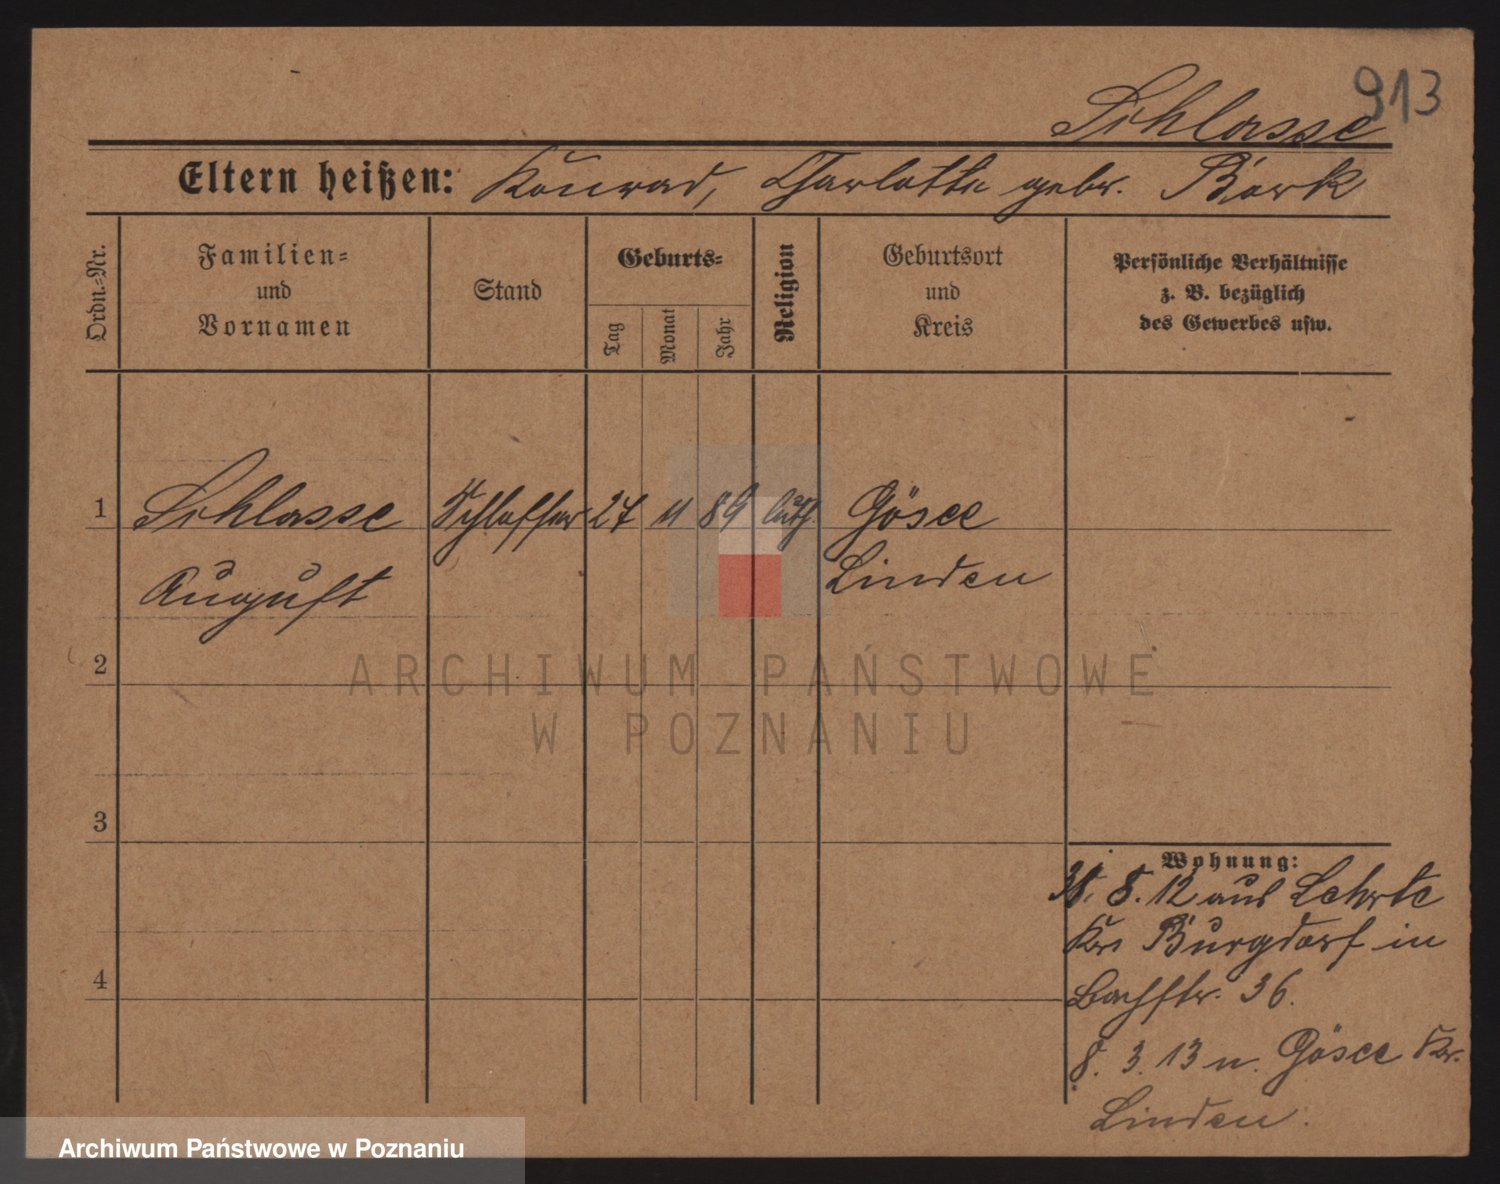 913
Schlasse
Eltern heißen: Konrad, Charlotte gebr. Bork
Ordn.-Nr.
Familien-
und
Vornamen
Stand
Geburts-
Tag
Monat
Jahr
Religion
Geburtsort
und
Kreis
Persönliche Verhältnisse
z. B. bezüglich
des Gewerbes usw.
1 Schlasse Schlosser 27 11 89 luth Gösee
August Linden
2
ARCHIWUM PAŃSTWOWE
W POZNANIU
3
Wohnung:
8.12 aus Lehrte
Krs Burgdorf in
4
Bachstr. 36.
8. 3. 13 n. Gösee Kr.
Linden.
Archiwum Państwowe w Poznaniu